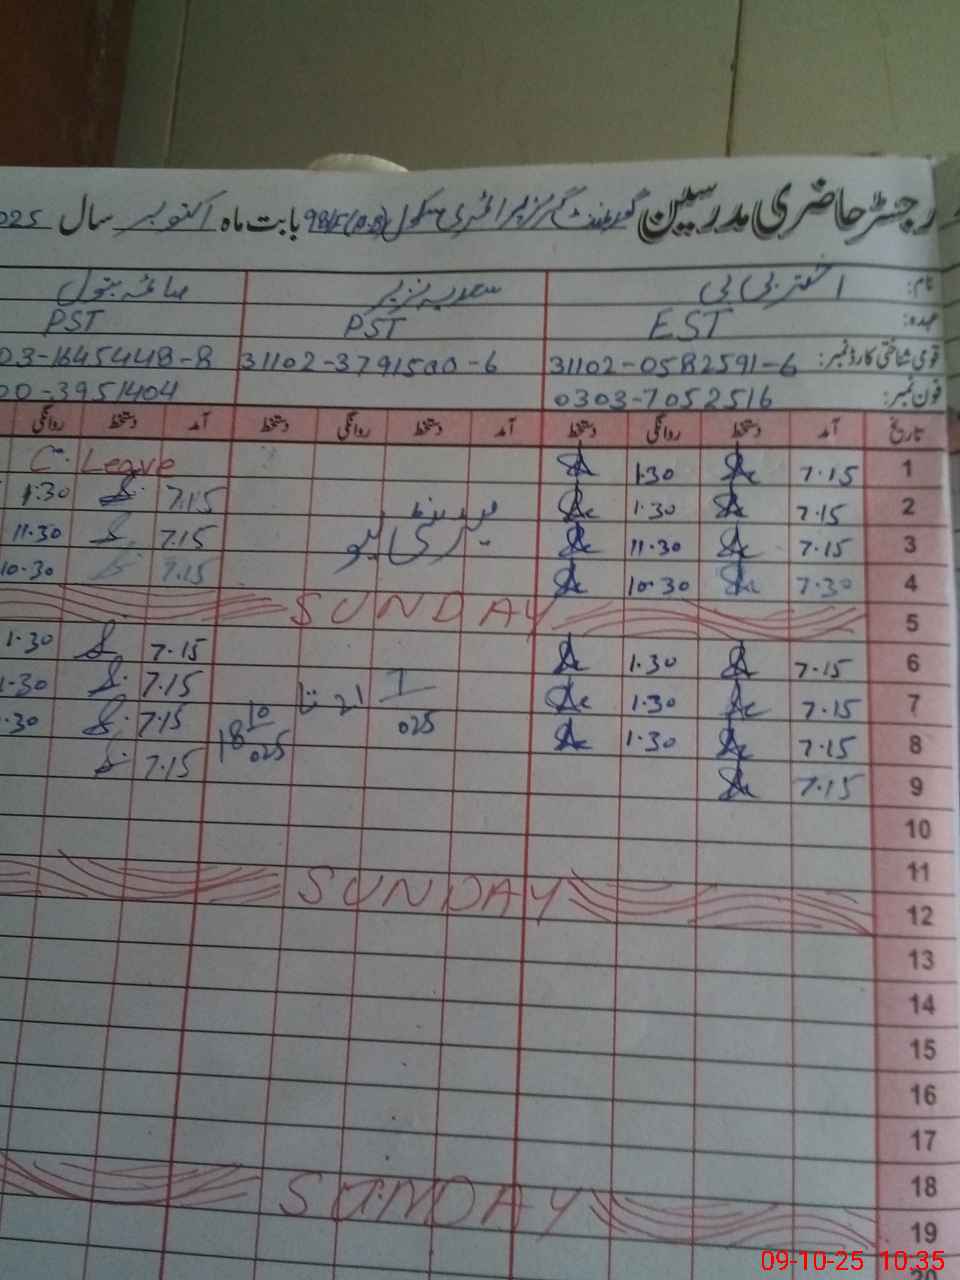 رجسٹر حاضری مدرسین گورنمنٹ گرلز پرائمری سکول 98/F(10.R) بابت ماہ اکتوبر سال 025
نام: اختر بی بی سعدیہ نزیر صائمہ بتول
عہدہ: EST PST PST
قومی شناختی کارڈ نمبر: 31102-0582591-6 31102-3791500-6 03-1645448-8
فون نمبر: 0303-7052516 00-3951404
تاریخ آمد دستخط روانگی دستخط آمد دستخط روانگی دستخط آمد دستخط روانگی
1 7.15 1.30 C. Leave
2 7.15 1.30 7.15 1.30
3 7.15 11.30 7.15 11.30
4 7.30 10.30 7.15 10.30
میٹرنٹی لیو
5 SUNDAY
6 7.15 1.30 7.15 1.30
7 7.15 1.30 7.15 1.30
8 7.15 1.30 7.15 .30
21 7/025 تا 18 10/025
9 7.15 7.15
10
11
12 SUNDAY
13
14
15
16
17
18
19 SUNDAY
20
09-10-25 10:35